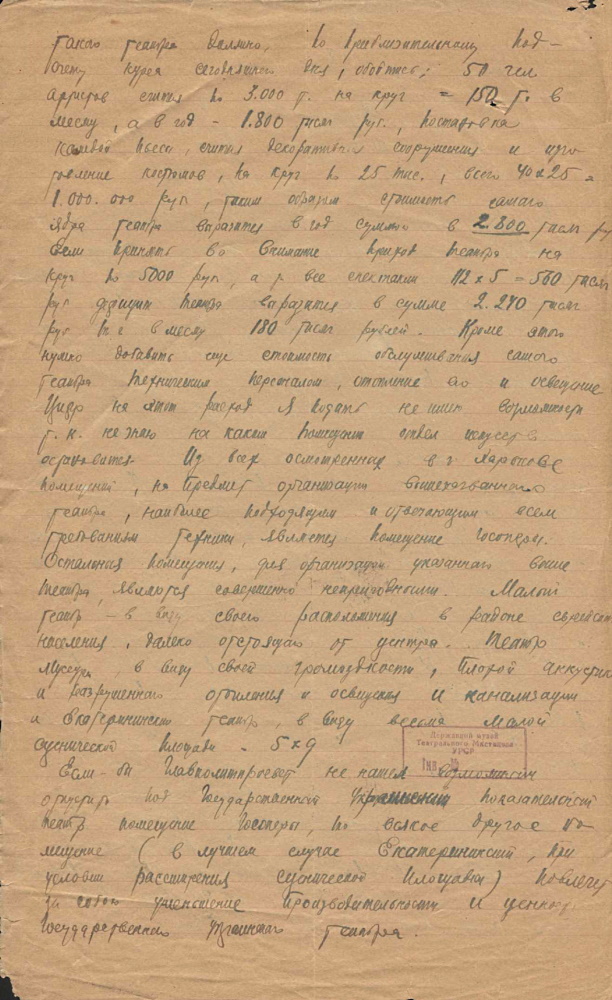 такого театра должно, по приблизительному под-
счету курса сегодняшнего дня, обойтись: 50 чел
артистов считая по 3.000 р. на круг = 150 т. в
месяц, а в год - 1.800 тысяч руб., постановка
каждой пьесы, считая декоративные сооружения и изго
товление костюмов, на круг по 25 тыс., всего 40х25 =
1.000.000 руб, таким образом стоимость самого
ядра театра выразится в год суммою в 2.800 тысяч руб
Если принять во внимание приход театра на
круг по 5000 руб, а за все спектакли 112 х 5 = 560 тысяч
руб дефицит театра выразится в сумме 2.240 тысяч
руб т.е в месяц 180 тысяч рублей. Кроме этого
нужно добавить еще стоимость обслуживания самого
театра техническим персоналом, отопление его и освещение
Цифр на этот расход я подать не имею возможности
т.к. не знаю на каком помещении отдел искусств
остановится. Из всех осмотренных в г. Харькове
помещений, на предмет организации вышеназванного
театра, наиболее подходящим и отвечающим всем
требованиям техники, является помещение Госоперы.
Остальныя помещения, для организации указанного выше
театра, являются совершенно непригодными. Малый
театр - в виду своего расположения в районе еврейского
населения, далеко отстоящаго от центра. Театр
Мусури, в виду своей громоздкости, плохой аккустики
и разрушенного отопления и освещения и канализации
и Екатерининский театр, в виду весьма малой
сценической площади - 5х9
Державний музей
Театрального Мистецтва
УРСР
Если-бы Главполитпросвет не нашел возможным
отпустить под Государственный Украинский показательный
театр помещение Госоперы, то всякое другое по
мещение (в лучшем случае Екатерининский, при
условии расширения сценической площади) повлечет
за собою уменьшение производительности и ценность
Государственного Украинского театра.